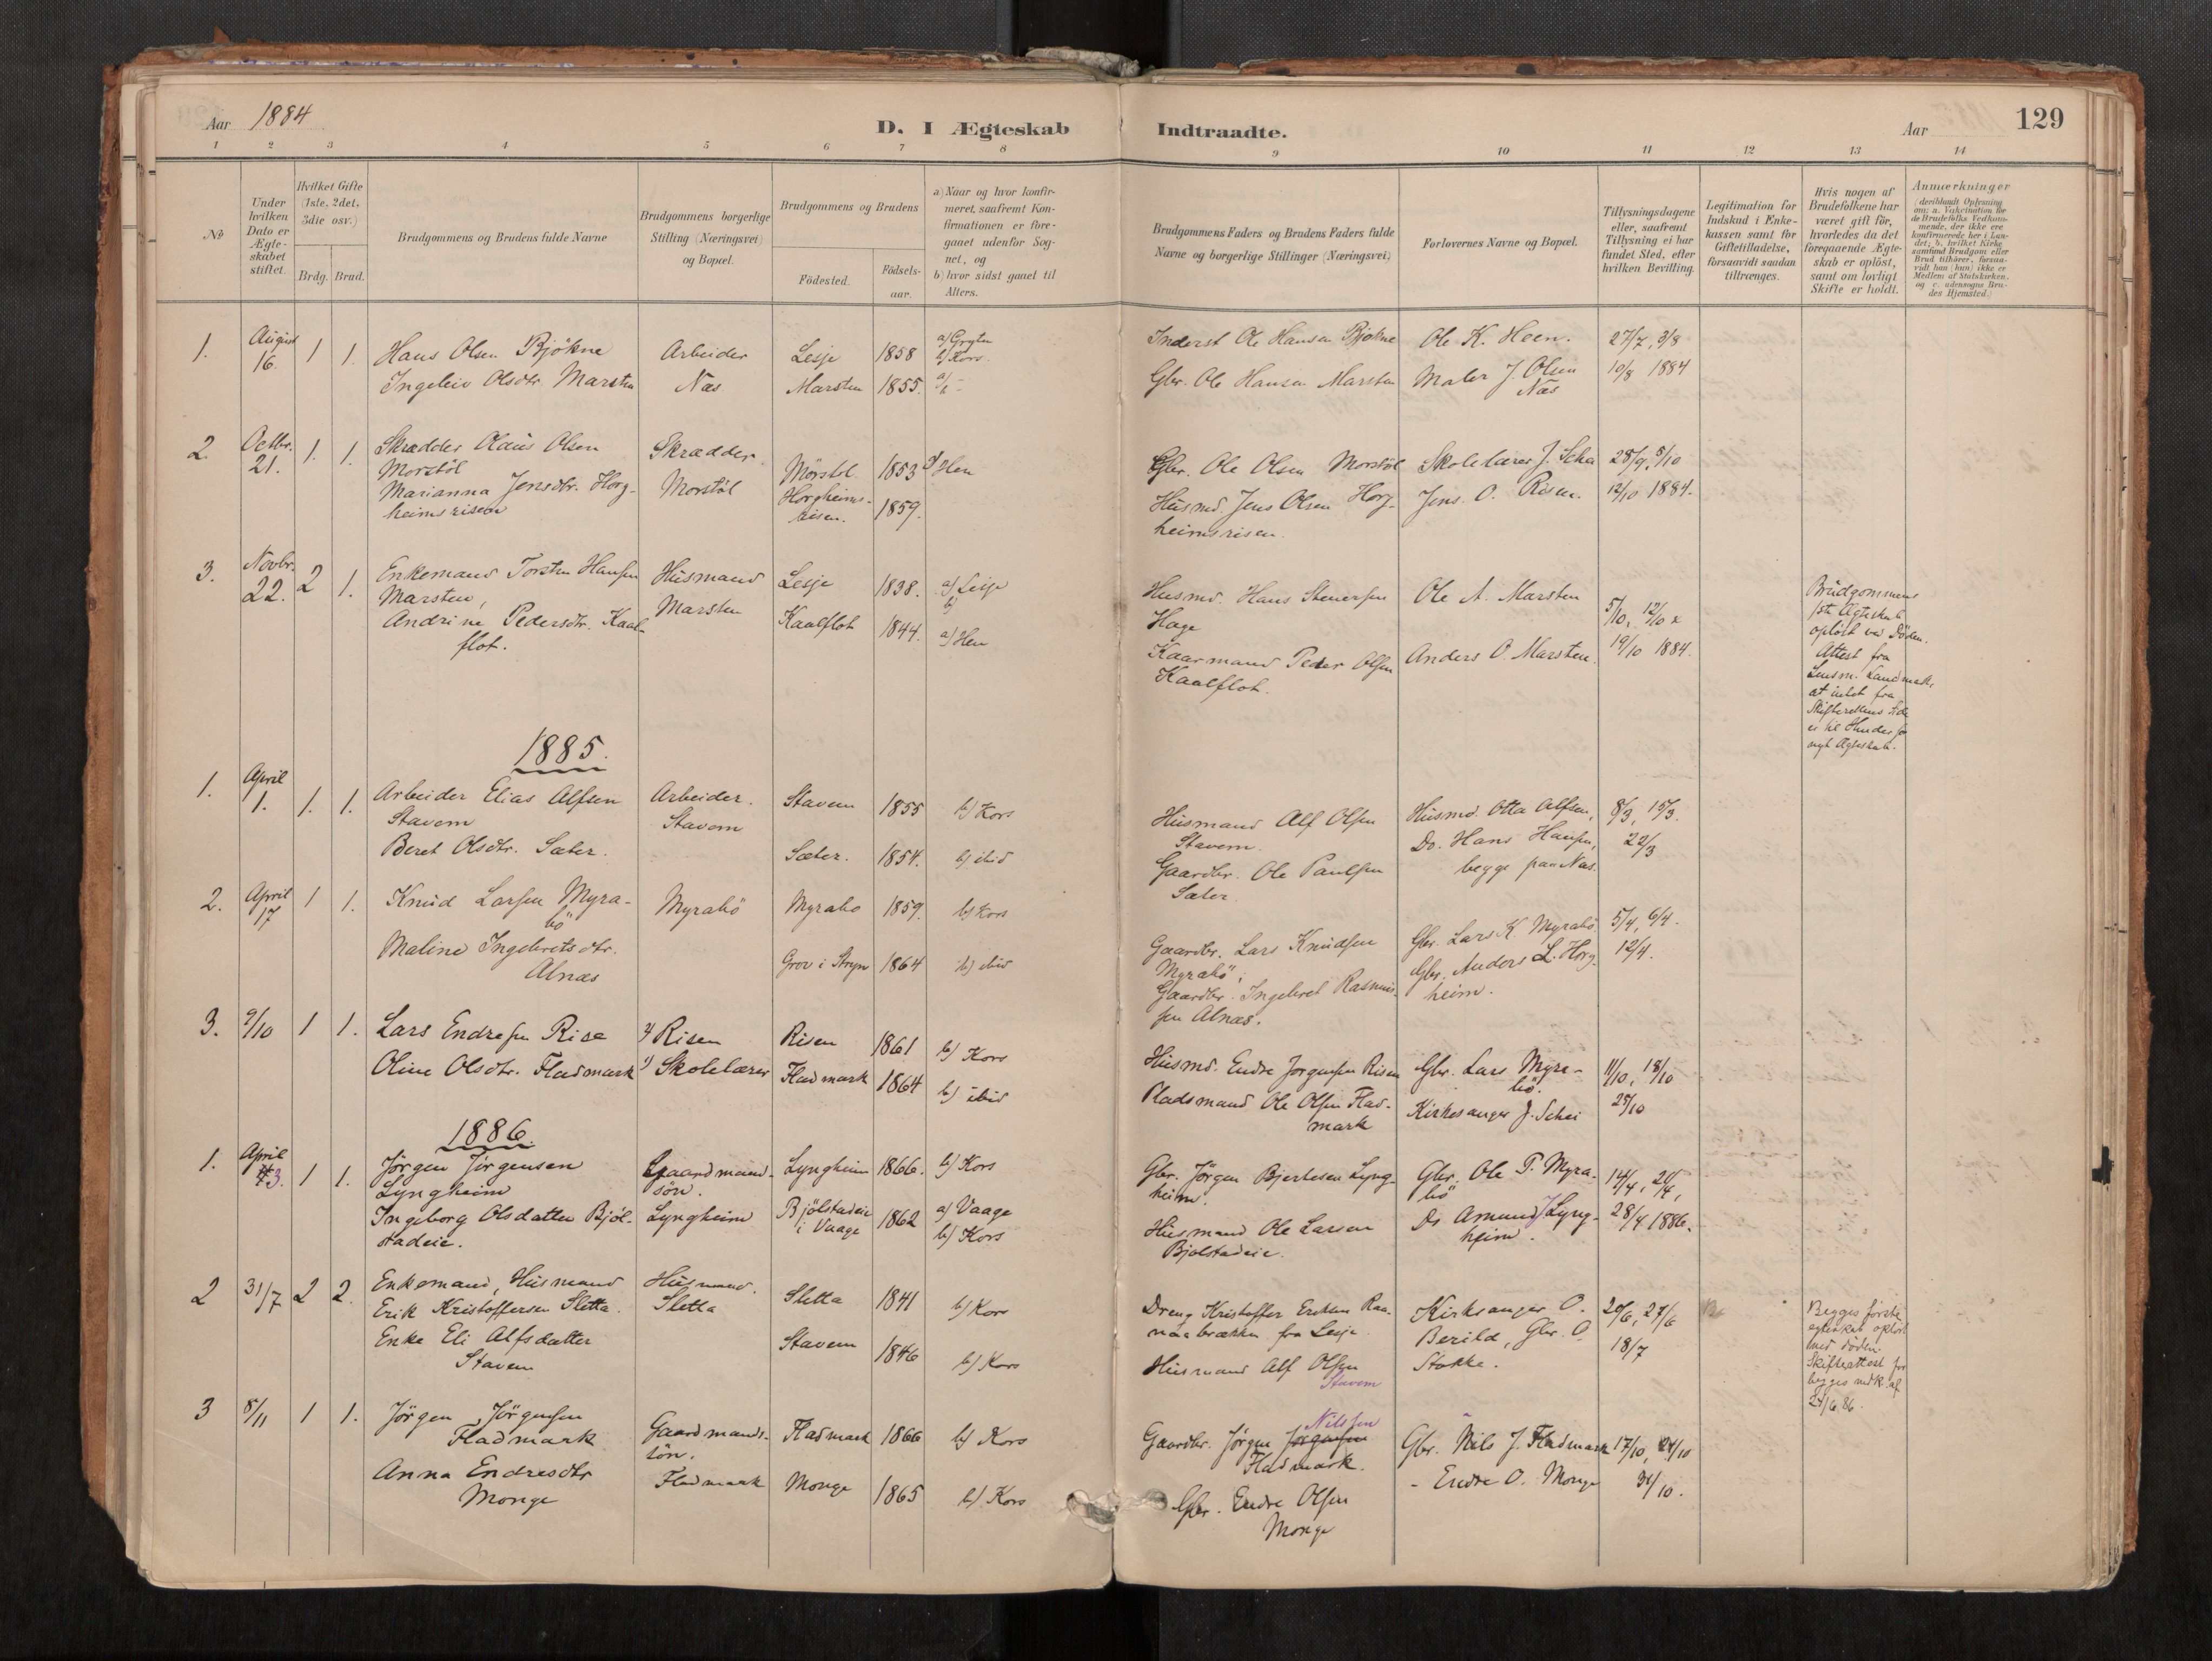 Aar 1884
D. I Ægteskab
Indtraadte.
Aar
129
1 2 3 4 5 6 7 8 9 10 11 12 13 14
No
Under hvilken Dato er Ægteskabet stiftet.
Hvilket Gifte (1ste, 2det, 3die osv.)
Brdg. Brud.
Brudgommens og Brudens fulde Navne
Brudgommens borgerlige Stilling (Næringsvei) og Bopæl.
Brudgommens og Brudens
Födested.
Födselsaar.
a) Naar og hvor konfirmeret, saafremt Konfirmationen er foregaaet udenfor Sognet, og
b) hvor sidst gaaet til Alters.
Brudgommens Faders og Brudens Faders fulde Navne og borgerlige Stillinger (Næringsvei)
Forlovernes Navne og Bopæl.
Tillysningsdagene eller, saafremt Tillysning ei har fundet Sted, efter hvilken Bevilling.
Legitimation for Indskud i Enkekassen samt for Giftetilladelse, forsaavidt saadan tiltrænges.
Hvis nogen af Brudefolkene har været gift för, hvorledes da det foregaaende Ægteskab er oplöst, samt om lovligt Skifte er holdt.
Anmærkninger
(deriblandt Oplysning om: a. Vakcination for de Brudefolks Vedkommende, der ikke ere konfirmerede her i Landet; b. hvilket Kirkesamfund Brudgom eller Brud tilhörer, forsaavidt han (hun) ikke er Medlem af Statskirken, og c. udensogns Brudes Hjemsted.)
1. August 16. 1 1. Hans Olsen Bjökne Arbeider Lesje 1858 a) Gryten b) Kors.
Inderst Ole Hansen Bjökne Ole K. Heen. 27/7, 3/8
Ingeleiv Olsdtr. Marsten Næs. Marsten 1855.
Gbr. Ole Hansen Marsten Maler J. Olsen Næs 10/8 1884
2. Octbr. 21. 1. 1. Skrædder Olaus Olsen Morstöl
Skrædder Morstöl Mörstöl 1853 Hen
Gbr. Ole Olsen Morstöl Skolelærer J. Schei 28/9, 5/10
Marianna Jensdtr. Horgheimsrisen
Horgheimsrisen. 1859.
Husmd. Jens Olsen Horgheimsrisen. Jens O. Risen. 12/10 1884.
3. Novbr. 22. 2 1. Enkemand Torsten Hansen Marsten,
Husmand Marsten Lesje 1838. a) Lesje b)
Husmd. Hans Stenersen Hage Ole A. Marsten 5/10, 12/10 &
Andrine Pedersdtr. Kaalflot.
Kaalflot 1844. a) Hen
Kaarmand Peder Olsen Kaalflot. Anders O. Marsten. 19/10 1884.
Brudgommens
1ste Ægteskab
oplöst ved Döden.
Attest fra
Lensm. Landmark,
at intet fra
Skifterettens Side
er til Hinder for
nyt Ægteskab.
1885.
1. April 1. 1. 1. Arbeider Elias Alfsen Stavem
Arbeider. Stavem Stavem 1855 b) Kors
Husmand Alf Olsen Stavem. Husmd. Otta Alfsen, 8/3, 15/3.
Beret Olsdtr. Sæter. Sæter. 1854. b) ibid
Gaardbr. Ole Paulsen Sæter. Do. Hans Hansen, begge paa Næs. 22/3
2. April 17 1 1. Knud Larsen Myrabö
Myrabö Myrabo 1859. b) Kors
Gaardbr. Lars Knudsen Myrabö, Gbr. Lars K. Myrabö 5/4, 6/4.
Maline Ingebretsdtr. Alnæs Grov i Stryn 1864 b) ibid
Gaardbr. Ingebret Rasmussen Alnæs. Gbr. Anders L. Horgheim. 12/4.
3. 9/10 1 1. Lars Endresen Risa 2) Risen Risen 1861 b) Kors
Husmd. Endre Jorgensen Risen Gbr. Lars Myrabö. 11/10, 18/10
Oline Olsdtr. Fladmark 1) Skolelærer Fladmark 1864 b) ibid
Pladsmand Ole Olsen Fladmark Kirkesanger J. Schei 25/10
1886.
1. April 3. 1 1. Jörgen Jörgensen Lyngheim
Gaardmandssön. Lyngheim Lyngheim 1866. b) Kors
Gbr. Jörgen Bjertesen Lyngheim. Gbr. Ole P. Myrabö 14/4, 21/4,
Ingeborg Olsdatter Bjölstadeie.
Bjölstadeie i Vaage 1862 a) Vaage b) Kors
Husmand Ole Larsen Bjolstadeie. Do Amund J Lyngheim. 28/4 1886.
2 31/7 2 2. Enkemand, Husmand Erik Kristoffersen Sletta.
Husmand. Sletta Sletta 1841 b) Kors
Dreng Kristoffer Eriksen Raanaabrækken fra Lesje Kirkesanger O. Berild, Gbr. O. Stokke. 20/6, 27/6
Enke Eli Alfsdatter Stavem
Stavem 1846 b) Kors
Husmand Alf Olsen Stavem 18/7
Begges første
egteskab oplöst
ved döden.
Skifteattest for
begges vedk. af
24/6 86.
3 5/11 1 1. Jörgen Jörgensen Fladmark
Gaardmandssön. Fladmark Fladmark 1866 b) Kors
Gaardbr. Jörgen Jörgensen Nilssen Fladmark. Gbr. Nils J. Fladmark 17/10, 24/10
Anna Endresdtr Monge Monge 1865 b) Kors
Gbr. Endre Olsen Monge - Endre O. Monge 31/10.